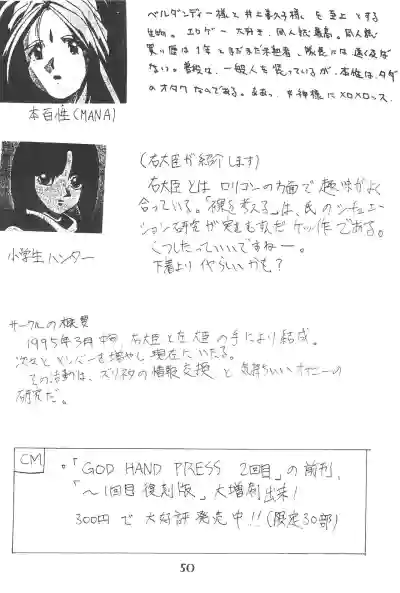 ベルダンディー様と井上喜久子様を至上とする
生物。エロゲー大好き、同人誌最高。同人誌
買い歴は1年とまだまだ未熟者、隊長には遠く及ば
ない。普段は、一般人を装っているが、本性は、タダ
のオタクなのである。ああっ、女神様にメロメロッス。
本百性(MANA)
(右大臣が紹介します)
右大臣とはロリコンの方面で趣味がよく
合っている。「裸を考える」は、氏のシチュエー
ション研究が実をむすんだケッ作である。
くつしたっていいですねー。
下着よりイヤらしいかも?
小学生ハンター
サークルの概要
1995年3月中旬 右大臣と左大臣の手により結成。
次々とメンバーを増やし現在にいたる。
その活動は、ズリネタの情報交換と気持ちいいオナニーの
研究だ。
CM
。「GOD HAND PRESS 2回目」の前刊、
「〜1回目復刻版」大増刷出来!
300円で大好評発売中!!(限定30部)
50